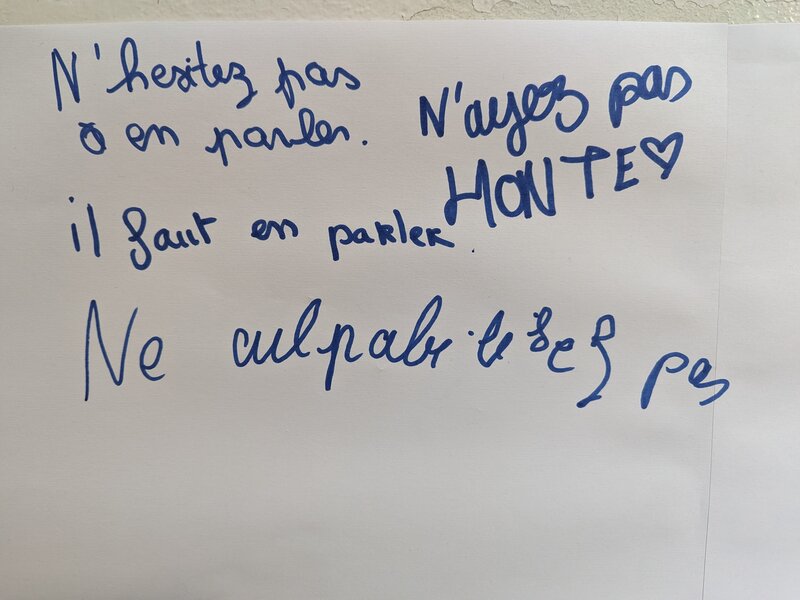 N'hesitez pas
à en parler.
N'ayez pas
HONTE♡
il faut en parler.
Ne culpabilisez pas